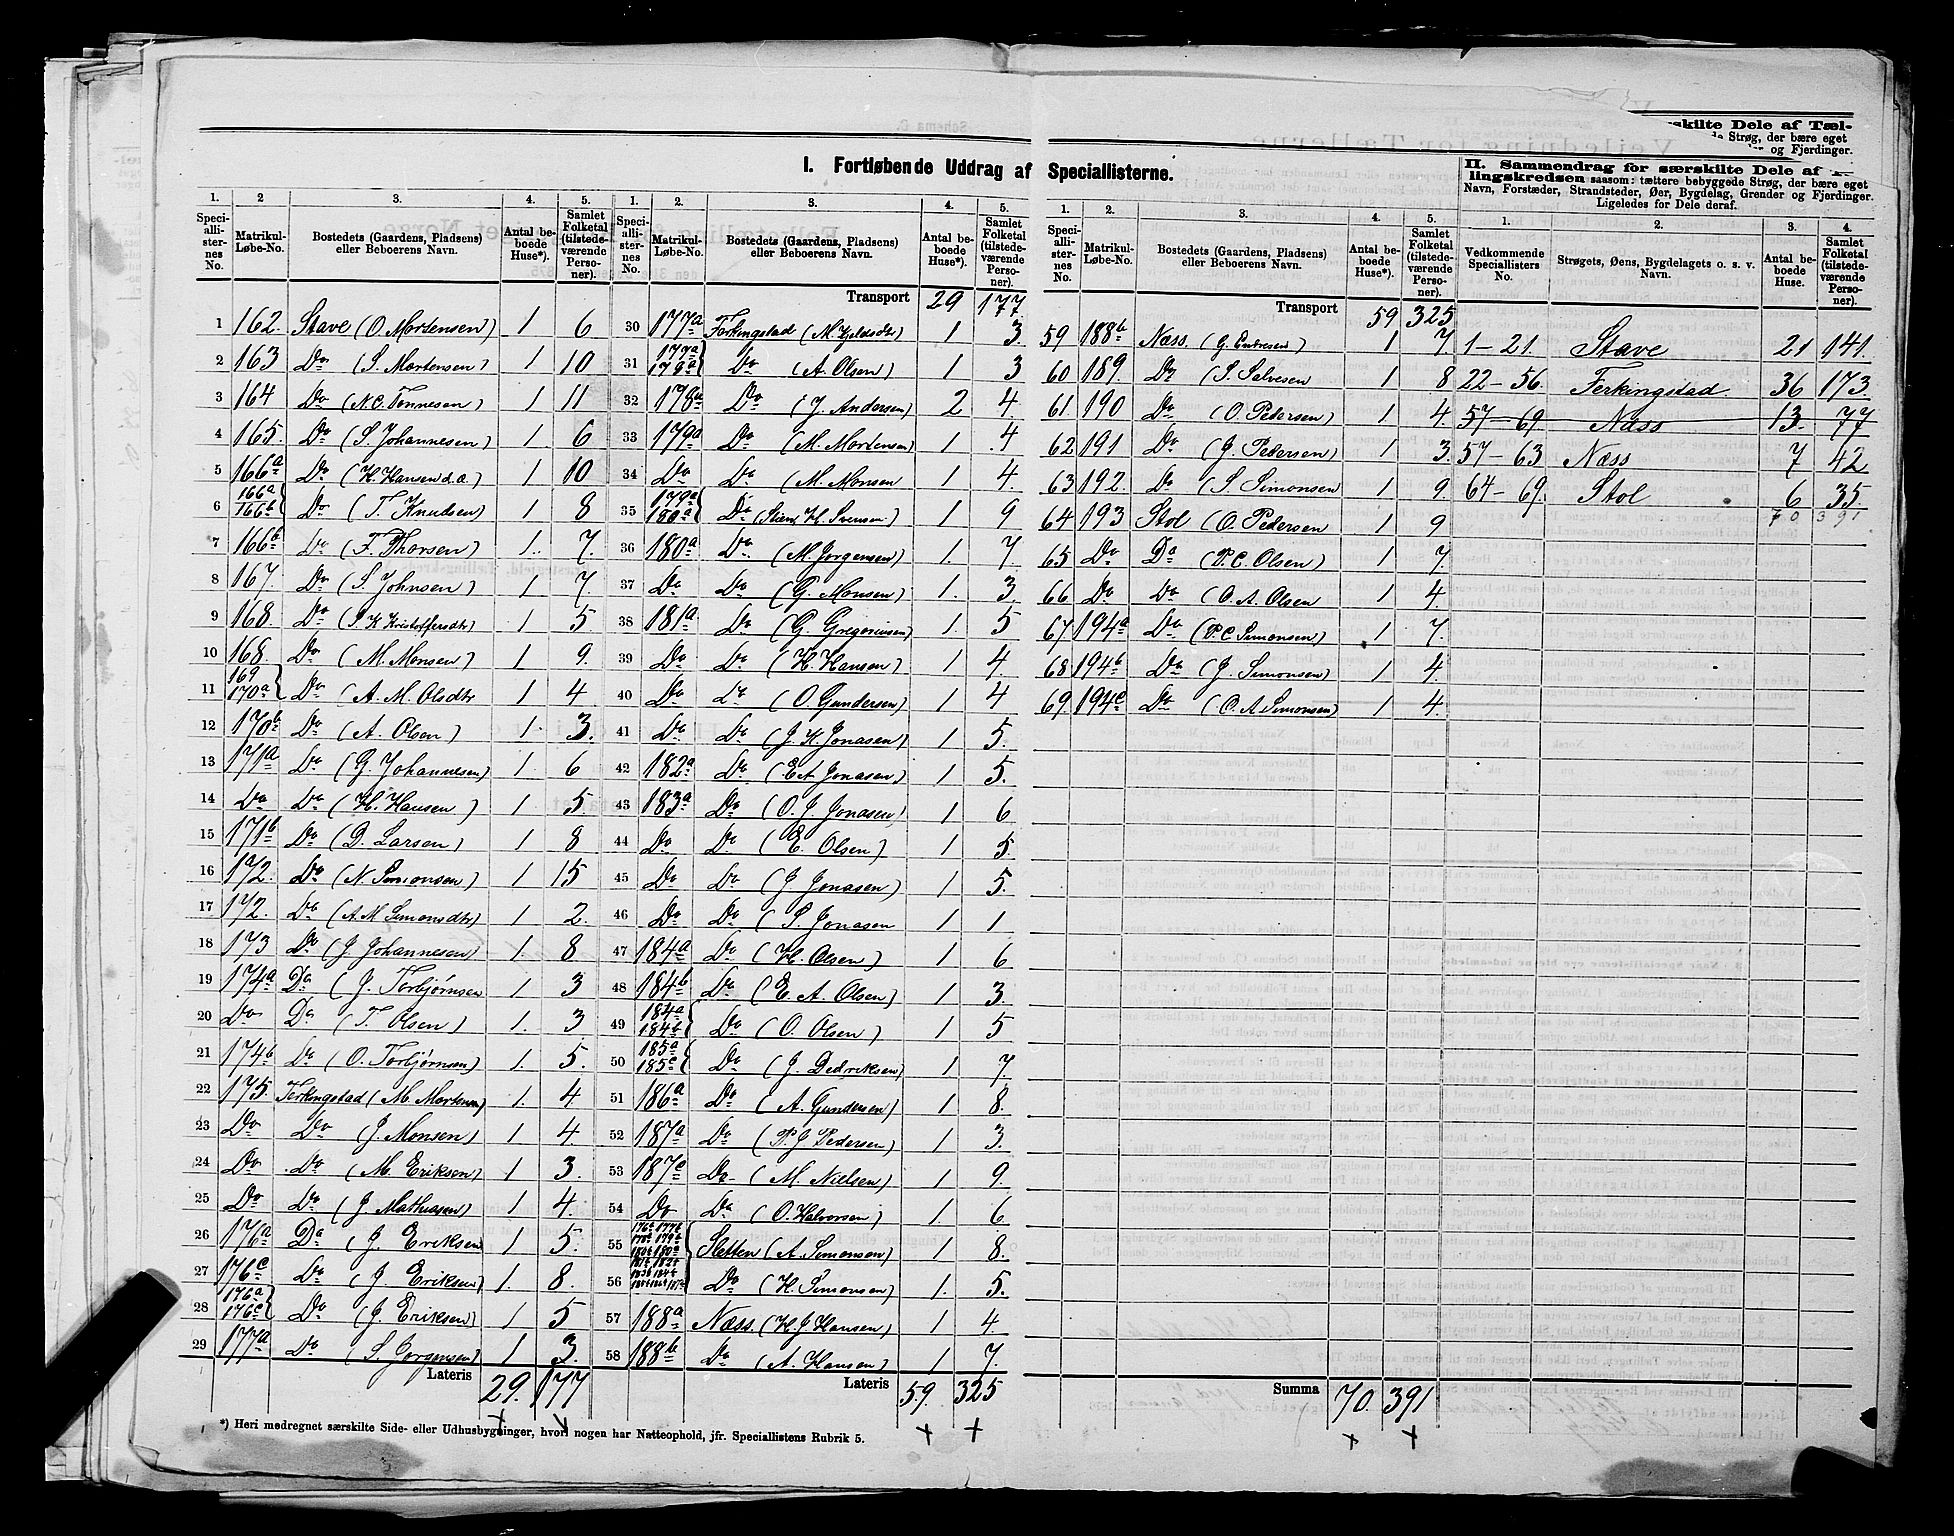 I. Fortløbende Uddrag af Speciallisterne.
1. 2 3. 4. 5.
Speciallisternes No. Matrikul-Løbe-No. Bostedets (Gaardens, Pladsens) eller Beboerens Navn. Antal beboede Huse*). Samlet Folketal (tilstedeværende Personer).
1 162. Stave (O. Mortensen) 1 6
2 163 Do (S. Mortensen) 1 10
3 164 Do (N.C. Tønnesen) 1 11
4 165. Do (S. Johannesen) 1. 6
5 166a Do (H. Hansen d.æ.) 1 10
6 166a 166b Do (T. Knudsen) 1 8
7 166b Do (F. Thorsen) 1. 7.
8 167. Do (S. Johnsen) 1 7.
9 168. Do (S. K Kristoffersdtr) 1 5
10 168. Do (M. Monsen) 1 9.
11 169 170a Do (A. M. Olsdtr 1 4
12 170b Do (A. Olsen) 1. 3.
13 171a Do (G. Johannesen) 1 6
14 Do Do (H. Hansen) 1 5.
15 171b Do (D. Larsen) 1 8
16 172. Do (N. Simonsen) 1 15
17 172. Do (A.M. Simonsdtr) 1 2.
18 173 Do (J. Johannesen) 1. 8
19 174a Do (J. Torbjørnsen 1. 3
20 Do Do (T. Olsen) 1. 3
21 174b Do (O. Torbjørnsen) 1. 5.
22 175. Ferkingstad (M. Mortensen) 1. 4
23 Do Do (J. Monsen) 1 4
24 Do Do (M. Eriksen) 1 3.
25 Do Do (J. Mathiasen) 1 4.
26 176a Do (J. Eriksen 1 5.
27 176c Do (J. Eriksen) 1. 8.
28 176a 176c Do (J. Eriksen) 1 5
29 177a Do (S. Jørgensen) 1 3.
Lateris 29. 177
*) Heri medregnet særskilte Side- eller Udhusbygninger, hvori nogen har Natteophold, jfr. Speciallistens Rubrik 5.
1. 2. 3. 4. 5.
Speciallisternes No. Matrikul-Løbe-No. Bostedets (Gaardens, Pladsens) eller Beboerens Navn. Antal beboede Huse*). Samlet Folketal (tilstedeværende Personer).
Transport 29 177.
30 177a Ferkingstad (M. Gjeldsdtr) 1 3.
31 177a 179a Do (A. Olsen) 1 3
32 178a Do (J. Andersen) 2 4
33 179a Do (M. Mortensen) 1 4
34 Do Do (M. Monsen 1 4.
35 179a 180a Do (H. Svensen) 1 9
36 180a Do (M. Jørgensen) 1. 7.
37 Do Do (G. Monsen) 1. 3.
38 181a Do (G. Gregoriusen) 1. 5
39 Do Do (H. Hansen) 1 4
40 Do Do (O. Gundersen) 1 4
41 Do Do (J. K. Jonasen) 1 5.
42 182a Do (E A Jonasen) 1 5.
43 183a Do (O. J. Jonasen) 1 6
44 Do Do (E. Olsen) 1 5.
45 Do Do (J. Jonasen) 1 5.
46 Do Do (S. Jonasen 1 1
47 184a Do (H. Olsen) 1 6
48 184b Do (E. A. Olsen) 1 3.
49 184a 184b Do (O. Olsen) 1 5
50 185a 185c Do (J. Dedriksen) 1 7.
51 186a Do (A. Gundersen) 1 8.
52 187a Do (P. J Pedersen) 1 3.
53 187c Do (M. Nielsen) 1 9.
54 Do Do (O. Halvorsen) 1. 6.
55 Sletten (A. Simonsen) 1 8.
56 Do (H. Simonsen) 1. 5.
57 188a Næss. (H. J Hansen) 1 4.
58 188b Do (A. Hansen) 1 7.
Lateris 59. 325
1. 2. 3. 4. 5.
Speciallisternes No. Matrikul-Løbe-No. Bostedets (Gaardens, Pladsens) eller Beboerens Navn. Antal beboede Huse*). Samlet Folketal (tilstedeværende Personer).
Transport 59 325
59 188b Næss. (G. Endresen) 1 7
60 189. Do (S. Salvesen 1 8
61. 190 Do (O. Pedersen) 1 4.
62 191 Do (J. Pedersen) 1 3.
63 192. Do (S. Simonsen 1 9.
64 193 Stol (O. Pedersen 1 9
65 Do Do (P.C. Olsen) 1 7.
66 Do Do (O. A. Olsen 1 4.
67 194a Do (P.C Simonsen) 1 7.
68 194b Do (J. Simonsen) 1 4.
69. 194c Do (O. A. Simonsen) 1 4.
Summa 70. 391
skilte Dele af Tæl-
Strøg, der bære eget
og Fjerdinger.
II. Sammendrag for særskilte Dele af
lingskredsen saasom: tættere bebyggede Strøg, der bære eget
Navn, Forstæder, Strandsteder, Øer, Bygdelag, Grender og Fjerdinger.
Ligeledes for Dele deraf.
1. 2. 3. 4.
Vedkommende Speciallisters No. Strøgets, Øens, Bygdelagets o. s. v. Navn. Antal beboede Huse. Samlet Folketal (tilstedeværende Personer).
1-21. Stave 21 141.
22-56. Ferkingstad. 36 173.
57-69. Næss 13. 77
57-63 Næss 7 42
64-69. Stol 6 35.
70 391